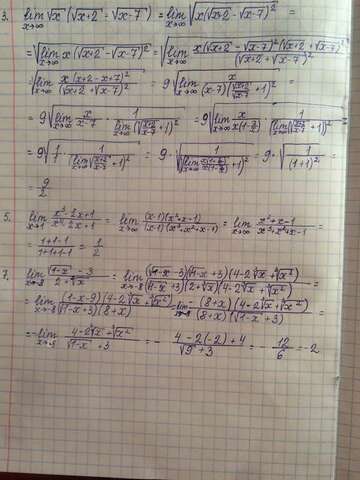 3. lim x→∞ √x (√x+2 - √x-7) = lim x→∞ √x(√x+2 - √x-7)² =
= √lim x→∞ x(√x+2 - √x-7)² = √lim x→∞ x(√x+2 - √x-7)²(√x+2 + √x-7)² / (√x+2 + √x-7)² =
√lim x→∞ x(x+2-x+7)² / (√x+2 + √x-7)² = 9√lim x→∞ x / (x-7)(√x+2/√x-7 + 1)² =
= 9√lim x→∞ x/x-7 · 1/lim x→∞ (√x+2/x-7 + 1)² = 9√lim x→∞ x/x(1-7/x) · 1/(lim x→∞ √x+2/x-7 + 1)² =
= 9√1/1 · 1/(lim x→∞ √x+2/x-7 + 1)² = 9 · √1/(lim x→∞ + 1)² = 9 · √1/(1+1)² =
= 9/2
5. lim x→1 x³-2x+1 / x⁴-2x+1 = lim x→∞ (x-1)(x²+x-1) / (x-1)(x³+x²+x-1) = lim x→∞ x²+x-1 / x³+x²+x-1 =
= 1+1-1 / 1+1+1-1 = 1/2
7. lim x→-8 √1-x - 3 / 2+∛x = lim x→-8 (√1-x - 3)(√1-x + 3)(4-2∛x+∛x²) / (√1-x + 3)(2+∛x)(4-2∛x+∛x²) =
= lim x→-8 (1-x-9)(4-2∛x+∛x²) / (√1-x+3)(8+x) = lim x→-8 -(8+x)(4-2∛x+∛x²) / (8+x)(√1-x+3) =
= -lim x→-8 4-2∛x+∛x² / √1-x + 3 = - 4-2(-2)+4 / √9+3 = - 12/6 = -2